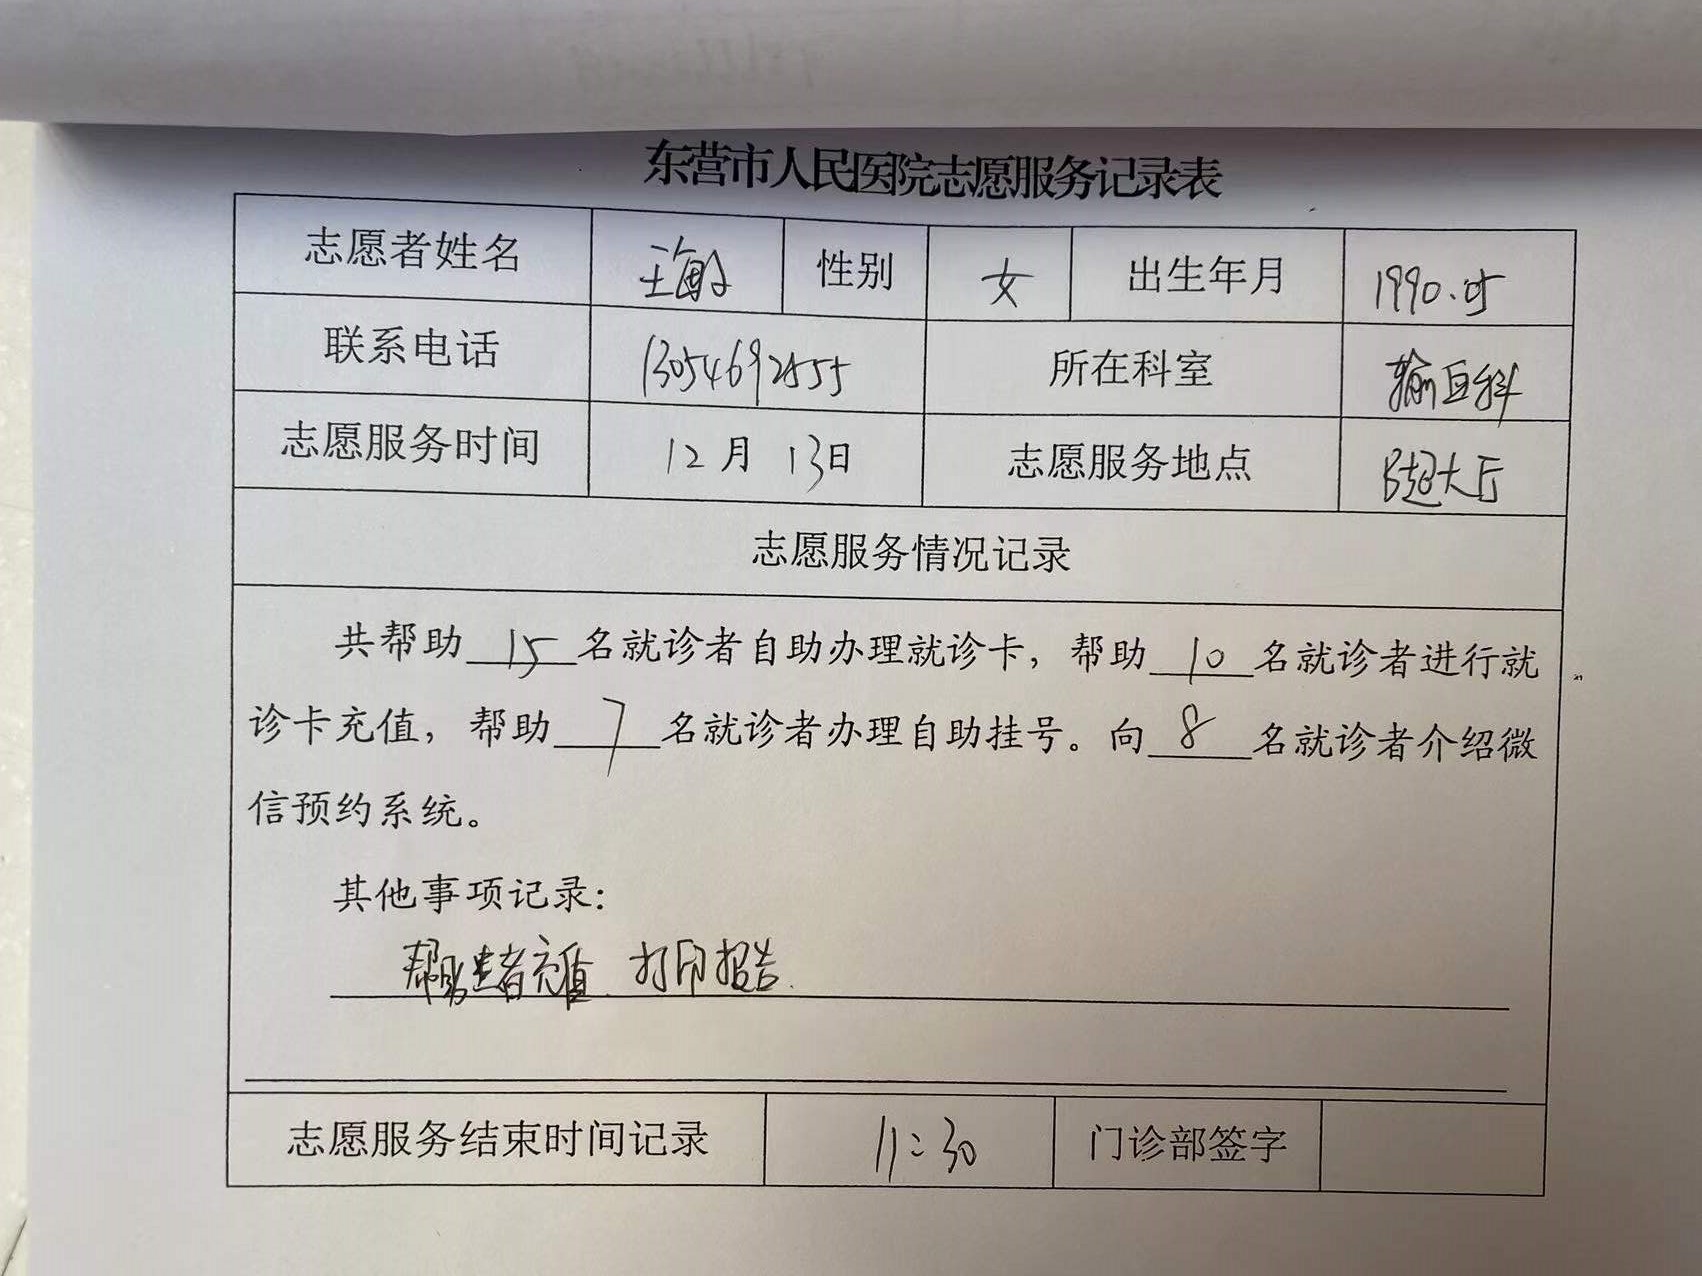 东营市人民医院志愿服务记录表
志愿者姓名 性别 女 出生年月 1990.05
联系电话 13054692555 所在科室 输血科
志愿服务时间 12月 13日 志愿服务地点 大厅
志愿服务情况记录
共帮助 15 名就诊者自助办理就诊卡，帮助 10 名就诊者进行就
诊卡充值，帮助 7 名就诊者办理自助挂号。向 8 名就诊者介绍微
信预约系统。
其他事项记录：
帮助患者充值 打印报告.
志愿服务结束时间记录 11:30 门诊部签字